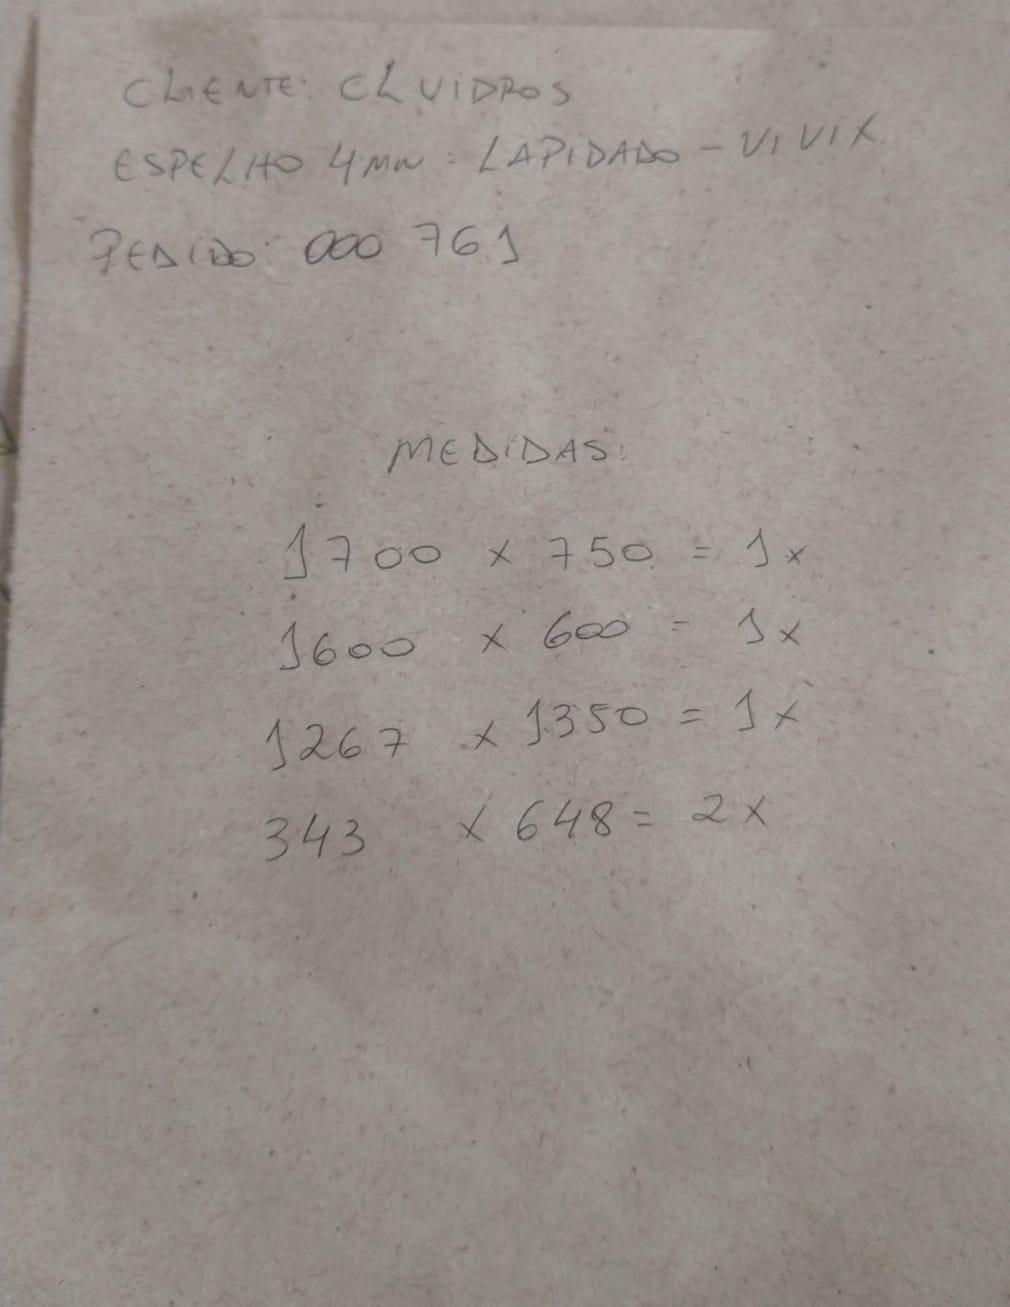 CLIENTE: CL VIDROS
ESPELHO 4MM: LAPIDADO - VIVIX
PEDIDO: 000 761
MEDIDAS:
1700 x 750 = 1x
1600 x 600 = 1x
1267 x 1350 = 1x
343 x 648 = 2x